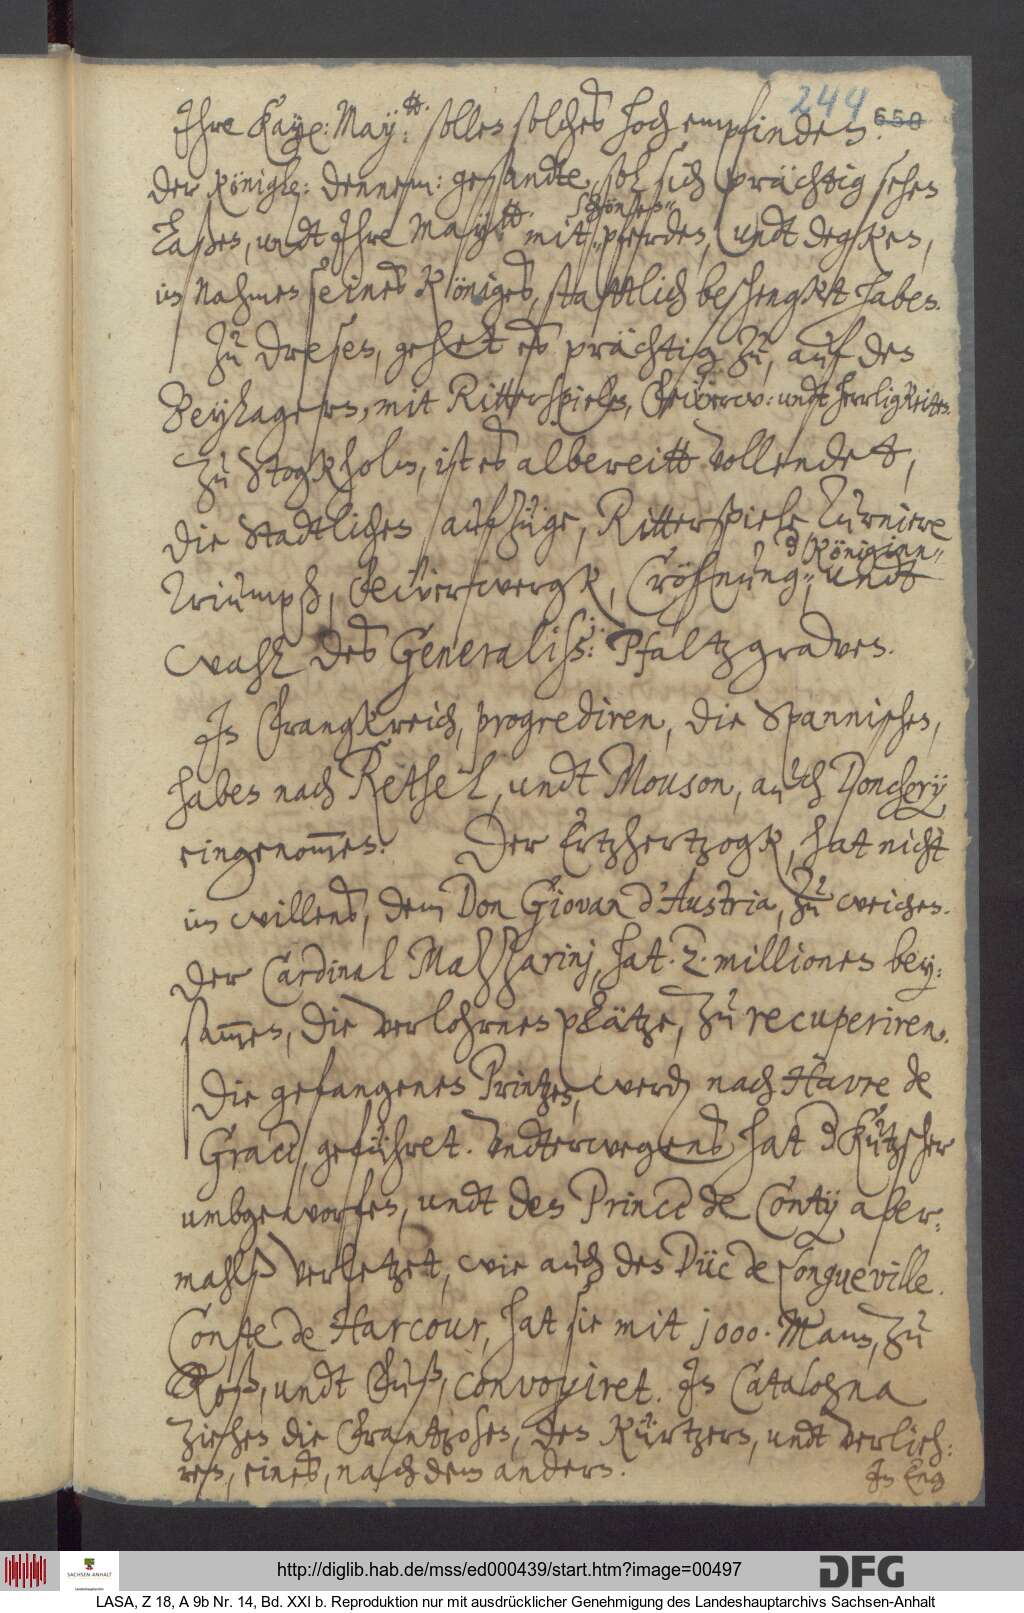 244 650
Ihre Kay: May:tt. sollen solches hoch empfinden.
Der Königl: Dennem: gesandte, sol sich prächtig sehen
laßen, undt Ihre May:tt mit schönen pferden, undt degken,
im Nahmen seines Königes, stattlich beschengkt haben.
Zu Dresen, gehet es prächtig zu, auf den
Beylagern, mit Ritterspielen, Feüerw: undt herrligkeitten.
Zu Stogkholm, ist es albereitt vollendet,
die Stadtlichen aufzüge, Ritterspiele, Turniere
Triumpf, Feüerwergk, Cröhnung d Königinn, undt
wahl des Generaliss: Pfaltzgraven.
In Frangkreich, progrediren, die Spannischen,
haben nach Rethel, undt Mouson, auch Donchery
eingenom̅en. Der Ertzhertzogk, hat nicht
im willens, dem Don Giovan d'Austria, zu weichen.
Der Cardinal Mazzarinj, hat .2. millionen bey:
sam̅en, die verlohrnen plätze, zu recuperiren.
Die gefangenen Printzen, werden nach Havre de
Grace, geführet. Undterwegens hat d Kützscher
umbgeworfen, undt den Prince de Conty aber:
mahlß verletzet, wie auch den Düc de Longueville.
Conte de Harcour, hat sie mit 1000. Mann, zu
Roß, undt Fuß, convoyiret. In Catalogna
ziehen die Frantzosen, den Kürtzern, undt verlieh:
ren, eines, nach dem andern.
In Eng
http://diglib.hab.de/mss/ed000439/start.htm?image=00497
SACHSEN-ANHALT
Landeshauptarchiv
DFG
LASA, Z 18, A 9b Nr. 14, Bd. XXI b. Reproduktion nur mit ausdrücklicher Genehmigung des Landeshauptarchivs Sachsen-Anhalt